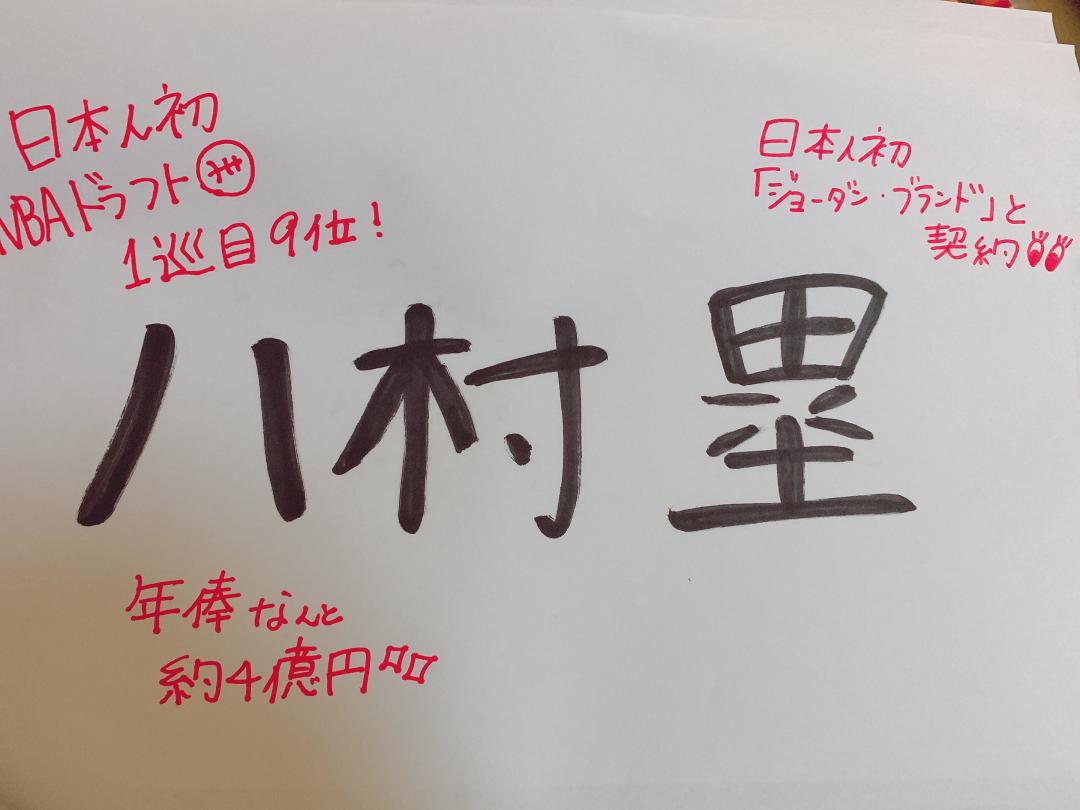 日本人初
NBAドラフト
1巡目9位!
日本人初
「ジョーダン・ブランド」と
契約!!
八村塁
年俸なんと
約4億円!!